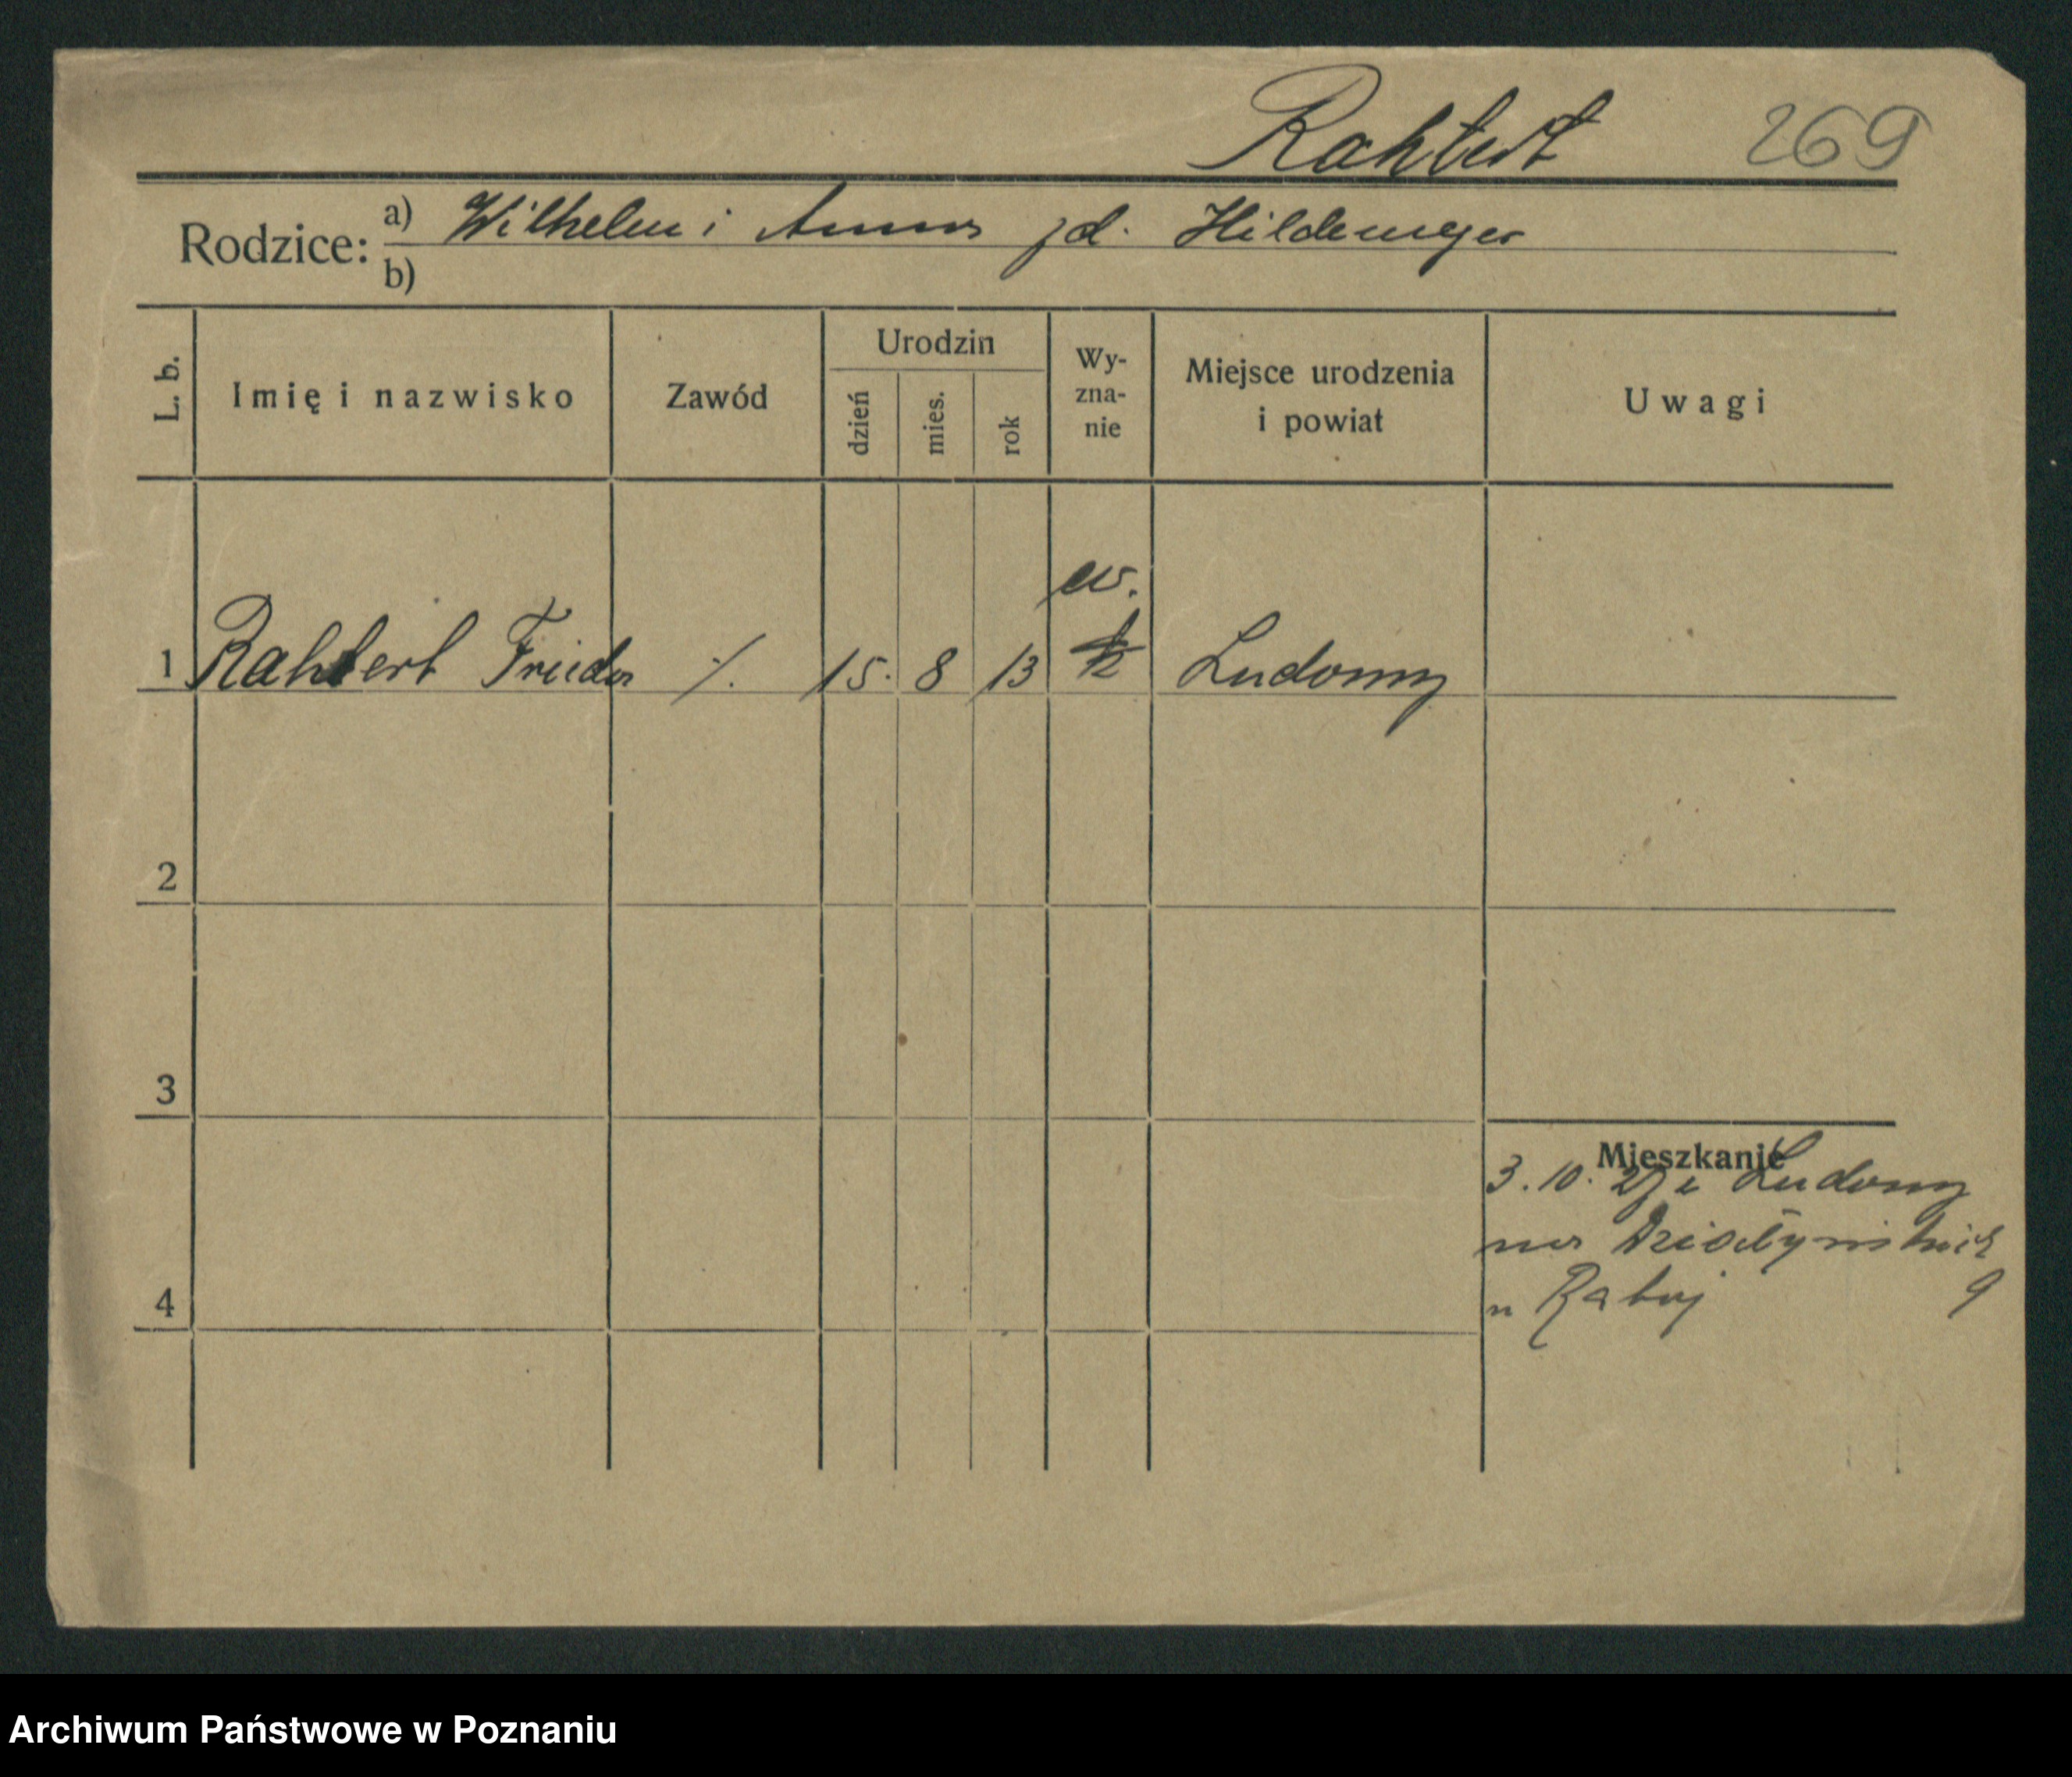 Rahtert 269
Rodzice: a) Wilhelm i Anna zd. Hildemeyer
b)
L. b. Imię i nazwisko Zawód Urodzin dzień mies. rok Wy-zna-nie Miejsce urodzenia i powiat Uwagi
ew.
1 Rahtert Frieda ./. 15. 8 13 Ludomy
2
3
4
Mieszkanie
3. 10. 27 z Ludomy
na Działyńskich 9
u
Archiwum Państwowe w Poznaniu